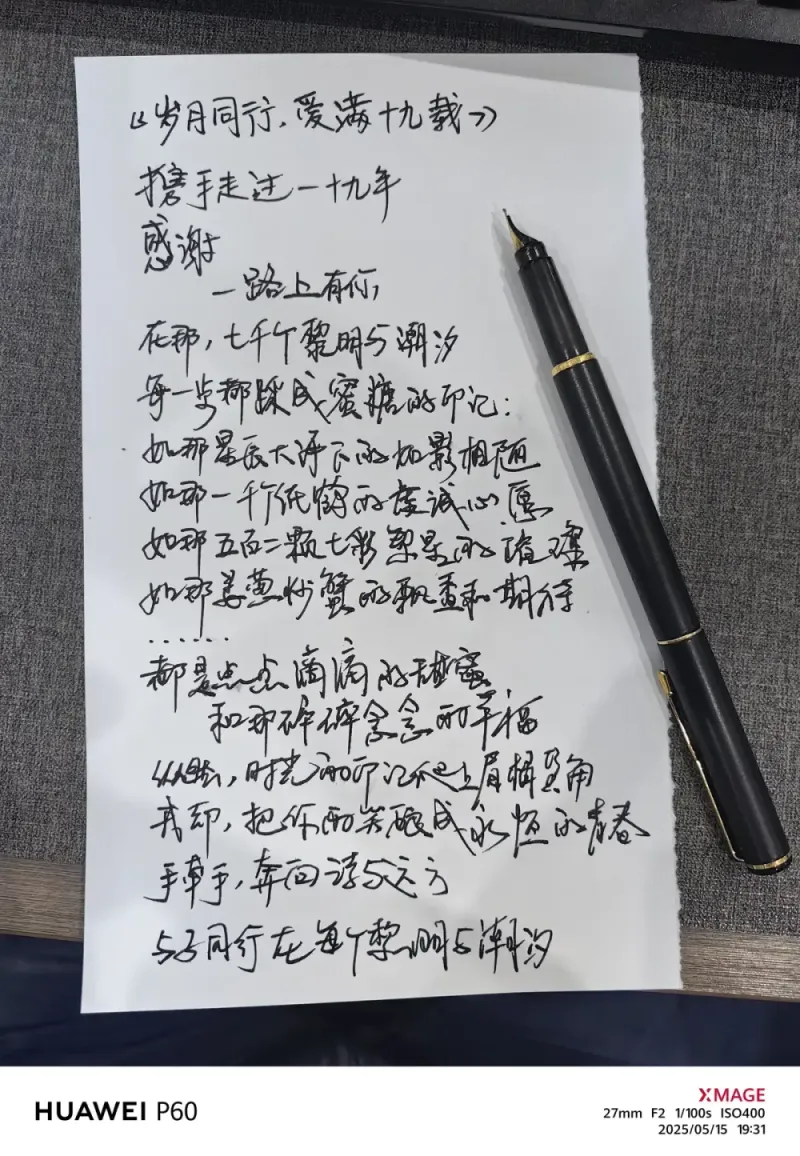 《岁月同行，爱满十九载》
携手走过一十九年
感谢
一路上有你，
在那，七千个黎明与潮汐
每一步都踩成蜜糖的印记：
如那星辰大海下的如影相随
如那一千个纸鹤的虔诚心愿
如那五百二颗七彩繁星的璀璨
如那姜葱炒蟹的飘香和期待
······
都是点点滴滴的甜蜜
和那碎碎念念的幸福
纵然，时光的印记爬上眉梢鬓角
我却，把你的笑酿成永恒的青春
手牵手，奔向诗与远方
与子同行在每个黎明与潮汐
HUAWEI P60
XMAGE
27mm F2 1/100s ISO400
2025/05/15 19:31